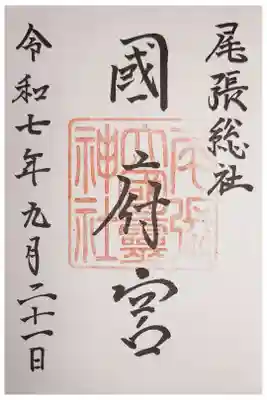 尾張総社
國府宮
尾張
大國霊
神社
令和七年九月二十一日